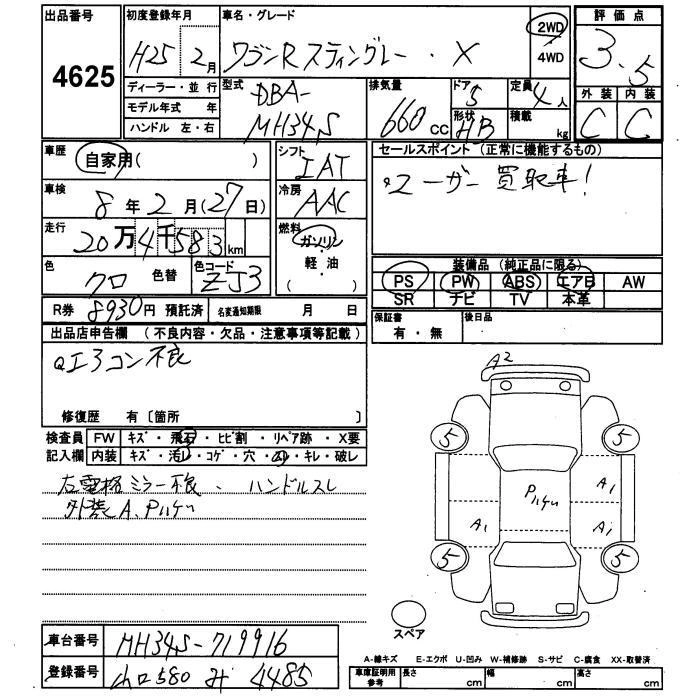 出品番号
4625
初度登録年月
H25 2月
車名・グレード
ワゴンR スティングレー ・ X
2WD
4WD
評価点
3.5
外装 内装
C C
ディーラー・並行
モデル年式 年
ハンドル 左・右
型式
DBA-
MH34S
排気量
660cc
ドア
5
形状
HB
定員
4人
積載
kg
車歴
自家用( )
車検
8年2月(27日)
走行
20万4千583km
色
クロ 色替
色コード
ZJ3
シフト
IAT
冷房
AAC
燃料
ガソリン
軽・油
( )
セールスポイント (正常に機能するもの)
ユーザー買取車!
装備品 (純正品に限る)
PS PW ABS エアB AW
SR ナビ TV 本革
R券 8930円 預託済 名変通知期限 月 日
保証書
有・無
後日品
出品店申告欄 (不良内容・欠品・注意事項等記載)
エアコン不良
修復歴 有〔箇所 〕
検査員
記入欄
FW キズ・飛石・ヒビ割・リペア跡・X要
内装 キズ・汚レ・コゲ・穴・スレ・キレ・破レ
左電格ミラー不良、ハンドルスレ
外装A、Pハゲ
A2
5 5
Pハゲ
A1
A1 A1
5 5
スペア
車台番号 MH34S-719916
登録番号 580 み 4485
A-線キズ E-エクボ U-凹み W-補修跡 S-サビ C-腐食 XX-取替済
車庫証明用
参考
長さ cm 幅 cm 高さ cm